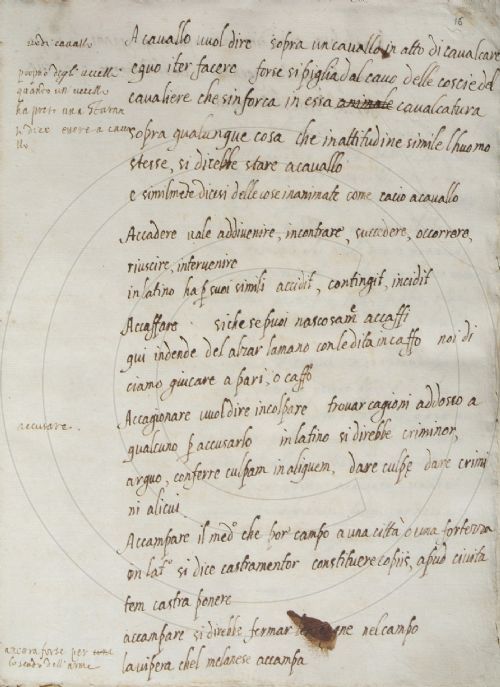 16
vedi cavallo
proprio degli uccelli
quando un uccello
ha preso una starna
si dice essere a caval
lo
A cavallo vuol dire sopra un cavallo in atto di cavalcare
equo iter facere forse si piglia dal cavo delle coscie del
cavaliere che sinforca in essa animale cavalcatura
sopra qualunque cosa che in attitudine simile lhuomo
stesse, si direbbe stare a cavallo
e similmẽte dicesi delle cose inanimate come cacio a cavallo
Accadere vale addivenire, incontrare, succedere, occorrere,
riuscire, intervenire
in latino ha p suoi simili accidit, contingit, incidit
Accaffare si che se puoi nascosamẽte accaffi
qui intende del alzar la mano con le dita in caffo noi di
ciamo giucare a pari, o caffo
accusare.
Accagionare vuol dire incolpare trovar cagioni addosso a
qualcuno p accusarlo in latino si direbbe criminor,
arguo, conferre culpam in aliquem, dare culpę dare crimi
ni alicui
Accampare il medo. che por campo a una città o una fortezza
in lato. si dice castramentor constituere copiis, apud civita
tem castra ponere
accampare si direbbe fermar le insegne nel campo
la vipera chel melanese accampa
ancora forse per
lo scudo dell'arme